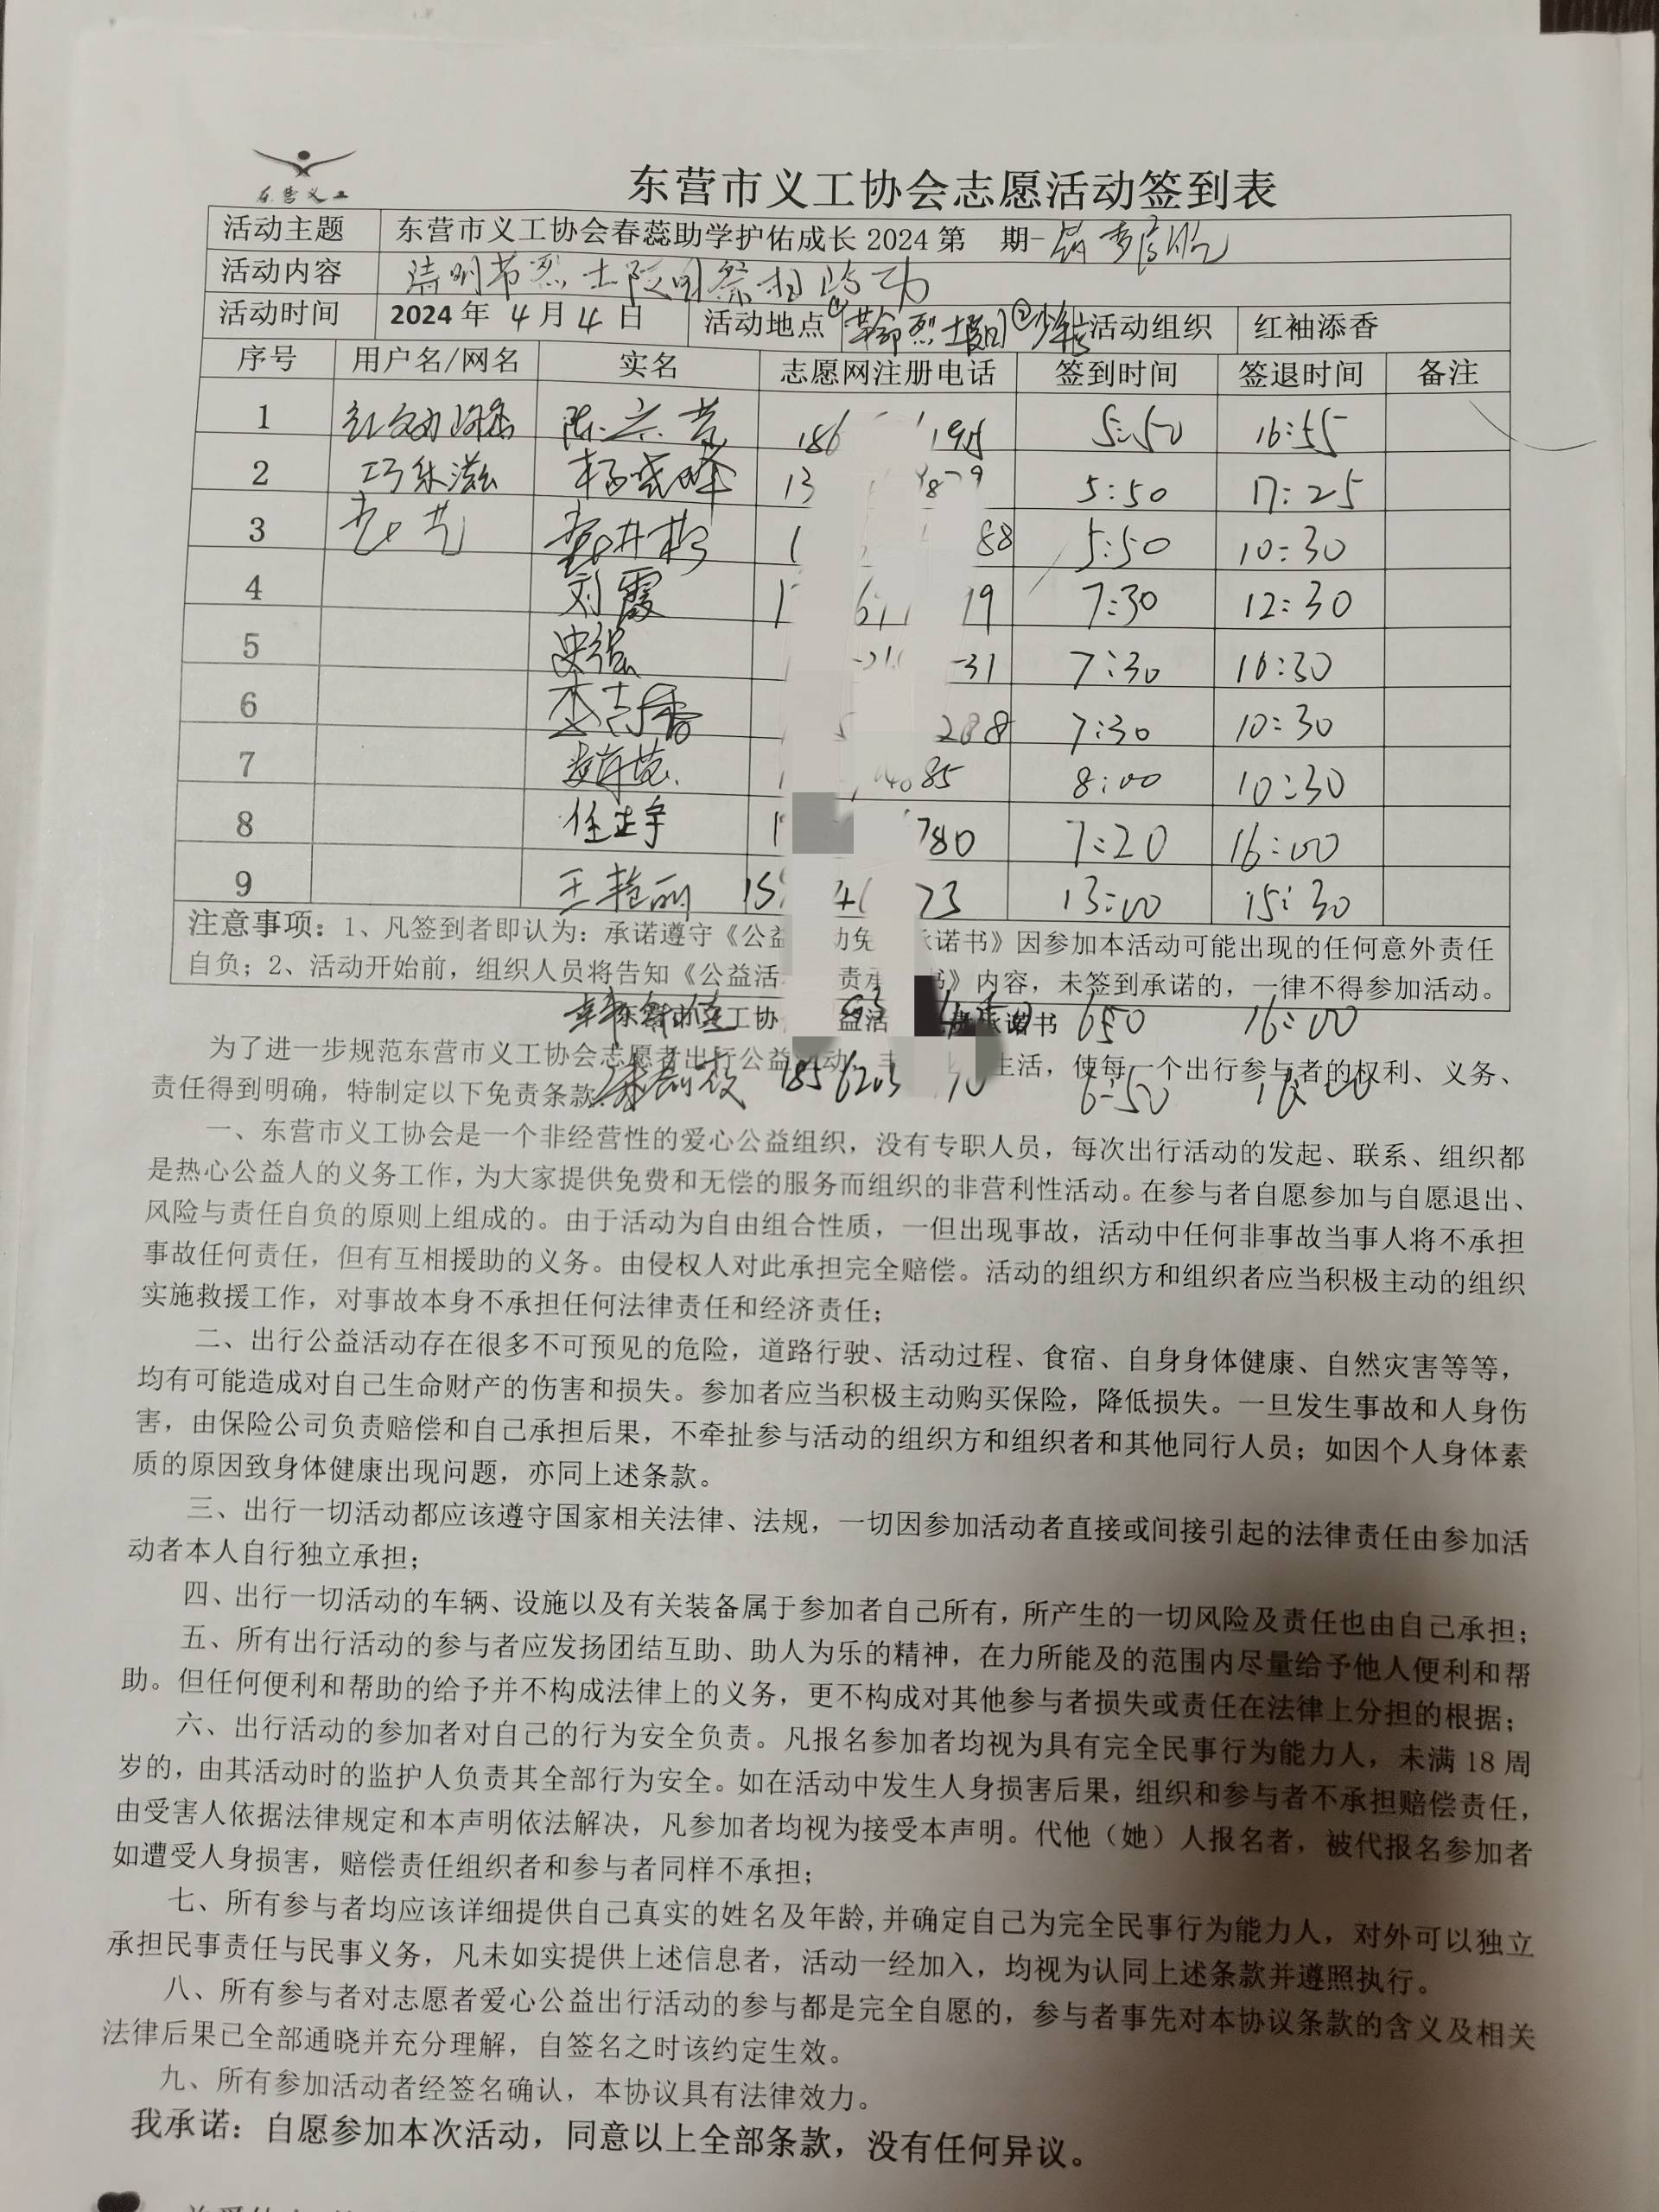 东营义工
东营市义工协会志愿活动签到表
活动主题 东营市义工协会春蕊助学护佑成长 2024 第 期-
活动内容 清明节烈士陵园祭扫活动
活动时间 2024 年 4 月 4 日 活动地点 ①革命烈士陵园② 活动组织 红袖添香
序号 用户名/网名 实名 志愿网注册电话 签到时间 签退时间 备注
1 5:50 16:55
2 巧乐滋 杨晓峰 13 5:50 17:25
3 1 88 5:50 10:30
4 刘霞 1 19 7:30 12:30
5 史强 31 7:30 10:30
6 288 7:30 10:30
7 85 8:00 10:30
8 任孟宇 780 7:20 16:00
9 王艳丽 15 73 13:00 15:30
注意事项：1、凡签到者即认为：承诺遵守《公益 动免 承诺书》因参加本活动可能出现的任何意外责任
自负；2、活动开始前，组织人员将告知《公益活 责承 书》内容，未签到承诺的，一律不得参加活动。
东营市义工协 益活 承诺书 6:50 16:00
为了进一步规范东营市义工协会志愿者出行公益活动，丰 生活，使每一个出行参与者的权利、义务、
责任得到明确，特制定以下免责条款： 6:50 16:00
一、东营市义工协会是一个非经营性的爱心公益组织，没有专职人员，每次出行活动的发起、联系、组织都
是热心公益人的义务工作，为大家提供免费和无偿的服务而组织的非营利性活动。在参与者自愿参加与自愿退出、
风险与责任自负的原则上组成的。由于活动为自由组合性质，一但出现事故，活动中任何非事故当事人将不承担
事故任何责任，但有互相援助的义务。由侵权人对此承担完全赔偿。活动的组织方和组织者应当积极主动的组织
实施救援工作，对事故本身不承担任何法律责任和经济责任；
二、出行公益活动存在很多不可预见的危险，道路行驶、活动过程、食宿、自身身体健康、自然灾害等等，
均有可能造成对自己生命财产的伤害和损失。参加者应当积极主动购买保险，降低损失。一旦发生事故和人身伤
害，由保险公司负责赔偿和自己承担后果，不牵扯参与活动的组织方和组织者和其他同行人员；如因个人身体素
质的原因致身体健康出现问题，亦同上述条款。
三、出行一切活动都应该遵守国家相关法律、法规，一切因参加活动者直接或间接引起的法律责任由参加活
动者本人自行独立承担；
四、出行一切活动的车辆、设施以及有关装备属于参加者自己所有，所产生的一切风险及责任也由自己承担；
五、所有出行活动的参与者应发扬团结互助、助人为乐的精神，在力所能及的范围内尽量给予他人便利和帮
助。但任何便利和帮助的给予并不构成法律上的义务，更不构成对其他参与者损失或责任在法律上分担的根据；
六、出行活动的参加者对自己的行为安全负责。凡报名参加者均视为具有完全民事行为能力人，未满 18 周
岁的，由其活动时的监护人负责其全部行为安全。如在活动中发生人身损害后果，组织和参与者不承担赔偿责任，
由受害人依据法律规定和本声明依法解决，凡参加者均视为接受本声明。代他（她）人报名者，被代报名参加者
如遭受人身损害，赔偿责任组织者和参与者同样不承担；
七、所有参与者均应该详细提供自己真实的姓名及年龄，并确定自己为完全民事行为能力人，对外可以独立
承担民事责任与民事义务，凡未如实提供上述信息者，活动一经加入，均视为认同上述条款并遵照执行。
八、所有参与者对志愿者爱心公益出行活动的参与都是完全自愿的，参与者事先对本协议条款的含义及相关
法律后果已全部通晓并充分理解，自签名之时该约定生效。
九、所有参加活动者经签名确认，本协议具有法律效力。
我承诺：自愿参加本次活动，同意以上全部条款，没有任何异议。